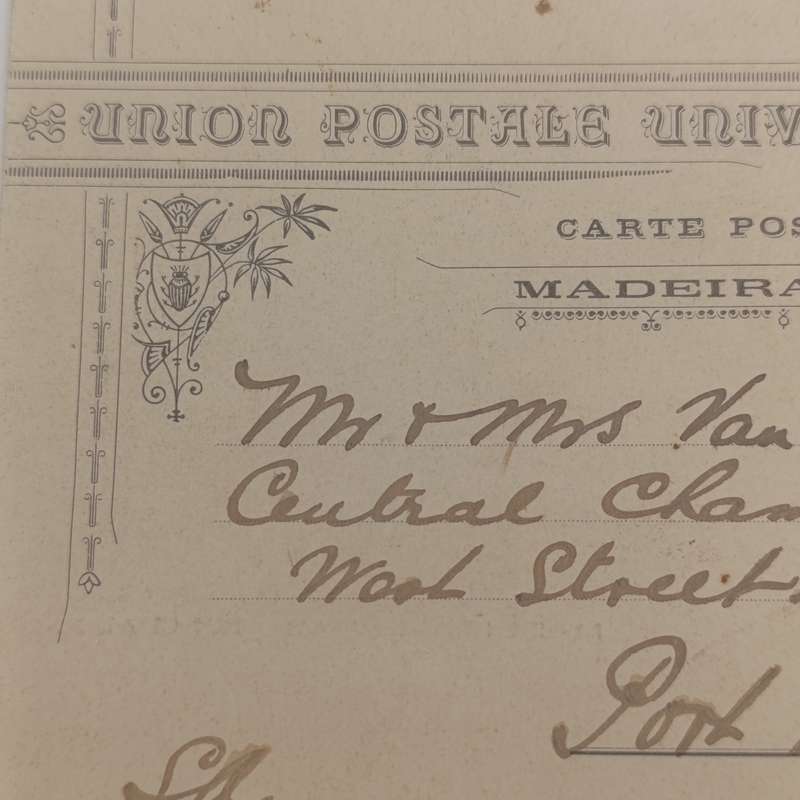 UNION POSTALE UNIV
CARTE POS
MADEIRA
Mr & Mrs Van
Central Cham
West Street
Port